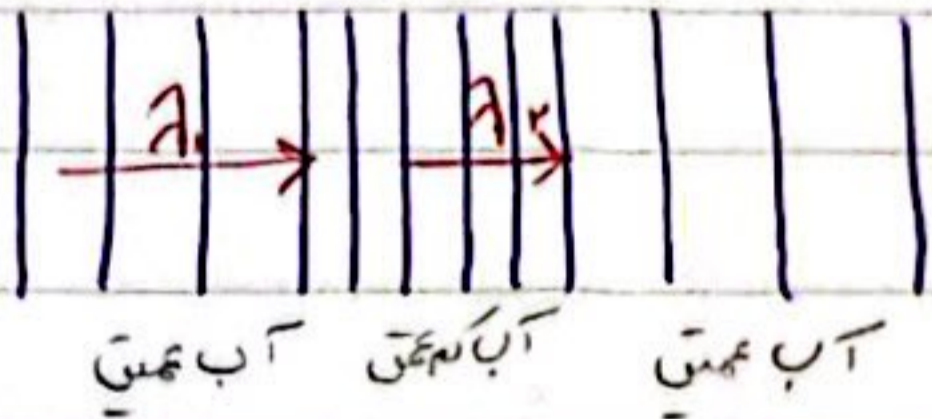 λ₁ λ₂
آب عمیق آب کم عمق آب عمیق